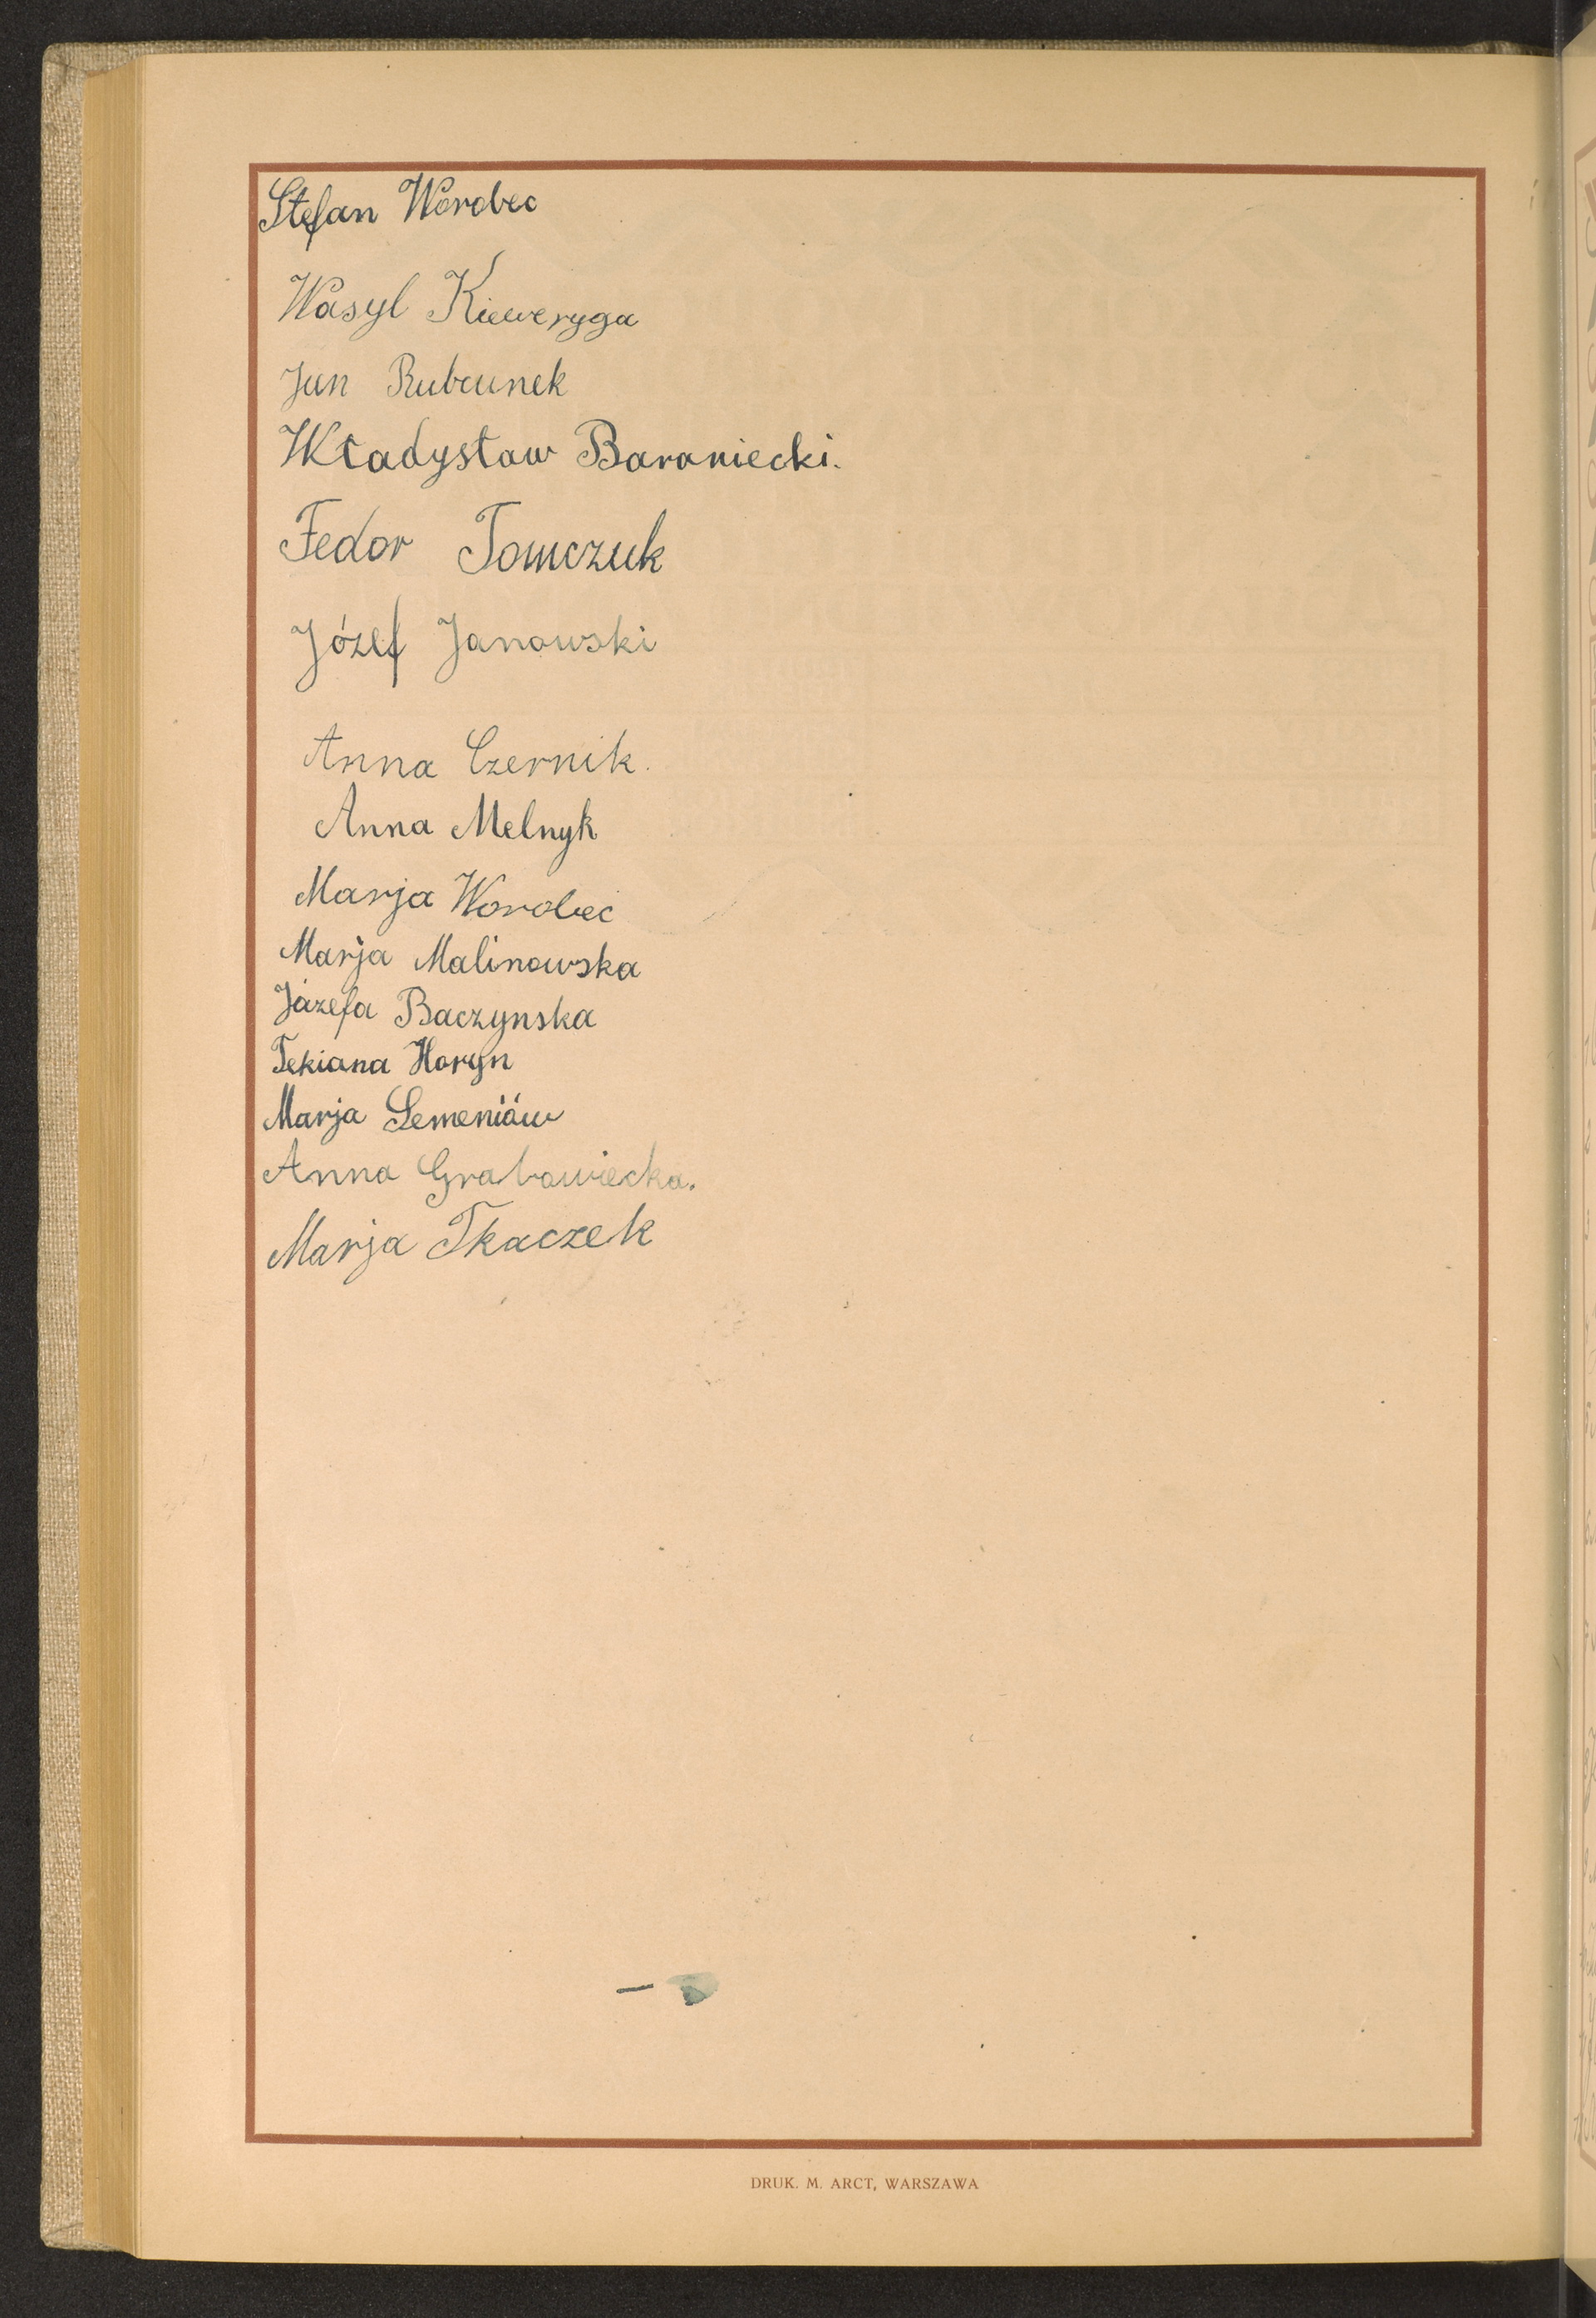 Stefan Worobec
Wasyl Kieweryga
Jan Rubrunek
Władysław Baraniecki.
Fedor Tomczuk
Józef Janowski
Anna Czernik.
Anna Melnyk
Marja Worobec
Marja Malinowska
Józefa Baczynska
Tekiana Horyn
Marja Semeniów
Anna Grabowiecka.
Marja Tkaczek
DRUK. M. ARCT, WARSZAWA